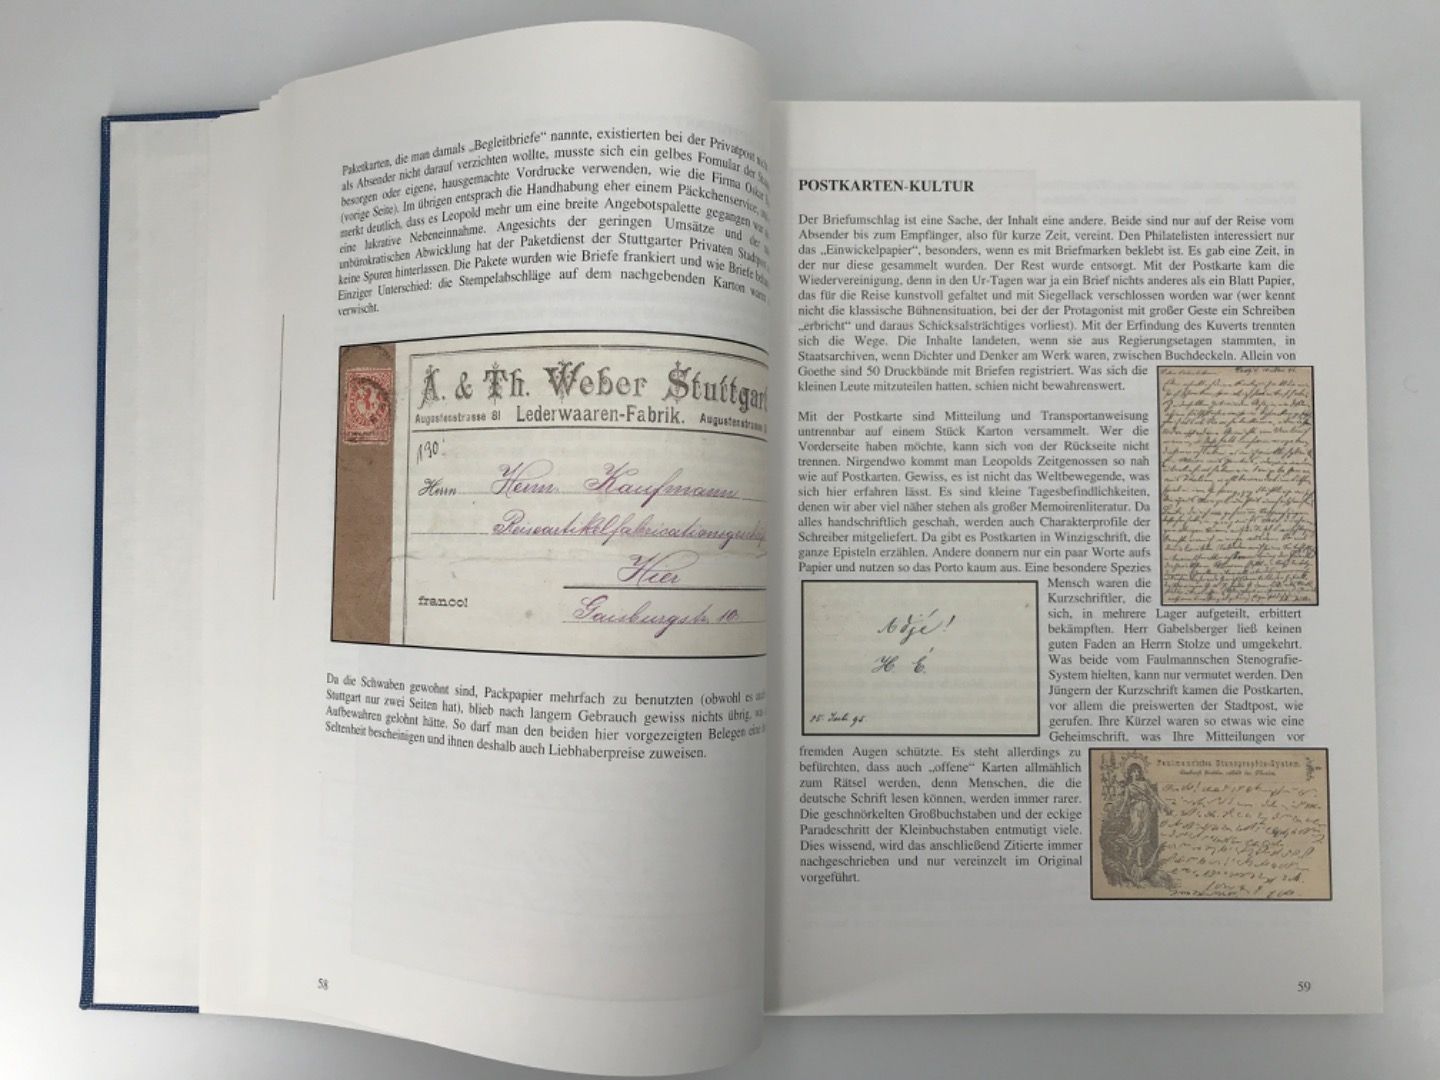 Paketkarten, die man damals „Begleitbriefe“ nannte, existierten bei der Privatpost
als Absender nicht darauf verzichten wollte, musste sich ein gelbes Fomular der
besorgen oder eigene, hausgemachte Vordrucke verwenden, wie die Firma Oskar
(vorige Seite). Im übrigen entsprach die Handhabung eher einem Päckchenservice,
merkt deutlich, dass es Leopold mehr um eine breite Angebotspalette gegangen war
eine lukrative Nebeneinnahme. Angesichts der geringen Umsätze und der
unbürokratischen Abwicklung hat der Paketdienst der Stuttgarter Privaten Stadtpost
keine Spuren hinterlassen. Die Pakete wurden wie Briefe frankiert und wie Briefe
Einziger Unterschied: die Stempelabschläge auf dem nachgebenden Karton waren
verwischt.
A. & Th. Weber Stuttgart
Augustenstrasse 81 Lederwaaren-Fabrik. Augustenstrasse
130
Herrn Herm. Kaufmann
Reiseartikelfabricationsgeschäft
Hier
franco! Gaisburgstr. 10.
Da die Schwaben gewohnt sind, Packpapier mehrfach zu benutzten (obwohl es
Stuttgart nur zwei Seiten hat), blieb nach langem Gebrauch gewiss nichts übrig,
Aufbewahren gelohnt hätte. So darf man den beiden hier vorgezeigten Belegen eine
Seltenheit bescheinigen und ihnen deshalb auch Liebhaberpreise zuweisen.
58
POSTKARTEN-KULTUR
Der Briefumschlag ist eine Sache, der Inhalt eine andere. Beide sind nur auf der Reise vom
Absender bis zum Empfänger, also für kurze Zeit, vereint. Den Philatelisten interessiert nur
das „Einwickelpapier“, besonders, wenn es mit Briefmarken beklebt ist. Es gab eine Zeit, in
der nur diese gesammelt wurden. Der Rest wurde entsorgt. Mit der Postkarte kam die
Wiedervereinigung, denn in den Ur-Tagen war ja ein Brief nichts anderes als ein Blatt Papier,
das für die Reise kunstvoll gefaltet und mit Siegellack verschlossen worden war (wer kennt
nicht die klassische Bühnensituation, bei der der Protagonist mit großer Geste ein Schreiben
„erbricht“ und daraus Schicksalsträchtiges vorliest). Mit der Erfindung des Kuverts trennten
sich die Wege. Die Inhalte landeten, wenn sie aus Regierungsetagen stammten, in
Staatsarchiven, wenn Dichter und Denker am Werk waren, zwischen Buchdeckeln. Allein von
Goethe sind 50 Druckbände mit Briefen registriert. Was sich die
kleinen Leute mitzuteilen hatten, schien nicht bewahrenswert.
Mit der Postkarte sind Mitteilung und Transportanweisung
untrennbar auf einem Stück Karton versammelt. Wer die
Vorderseite haben möchte, kann sich von der Rückseite nicht
trennen. Nirgendwo kommt man Leopolds Zeitgenossen so nah
wie auf Postkarten. Gewiss, es ist nicht das Weltbewegende, was
sich hier erfahren lässt. Es sind kleine Tagesbefindlichkeiten,
denen wir aber viel näher stehen als großer Memoirenliteratur. Da
alles handschriftlich geschah, werden auch Charakterprofile der
Schreiber mitgeliefert. Da gibt es Postkarten in Winzigschrift, die
ganze Episteln erzählen. Andere donnern nur ein paar Worte aufs
Papier und nutzen so das Porto kaum aus. Eine besondere Spezies
Mensch waren die
Kurzschriftler, die
sich, in mehrere Lager aufgeteilt, erbittert
bekämpften. Herr Gabelsberger ließ keinen
guten Faden an Herrn Stolze und umgekehrt.
Was beide vom Faulmannschen Stenografie-
System hielten, kann nur vermutet werden. Den
Jüngern der Kurzschrift kamen die Postkarten,
vor allem die preiswerten der Stadtpost, wie
gerufen. Ihre Kürzel waren so etwas wie eine
Geheimschrift, was Ihre Mitteilungen vor
Adje!
H. E.
95.
fremden Augen schützte. Es steht allerdings zu
befürchten, dass auch „offene“ Karten allmählich
zum Rätsel werden, denn Menschen, die die
deutsche Schrift lesen können, werden immer rarer.
Die geschnörkelten Großbuchstaben und der eckige
Paradeschritt der Kleinbuchstaben entmutigt viele.
Dies wissend, wird das anschließend Zitierte immer
nachgeschrieben und nur vereinzelt im Original
vorgeführt.
Faulmann'sches Stenographie-System.
59